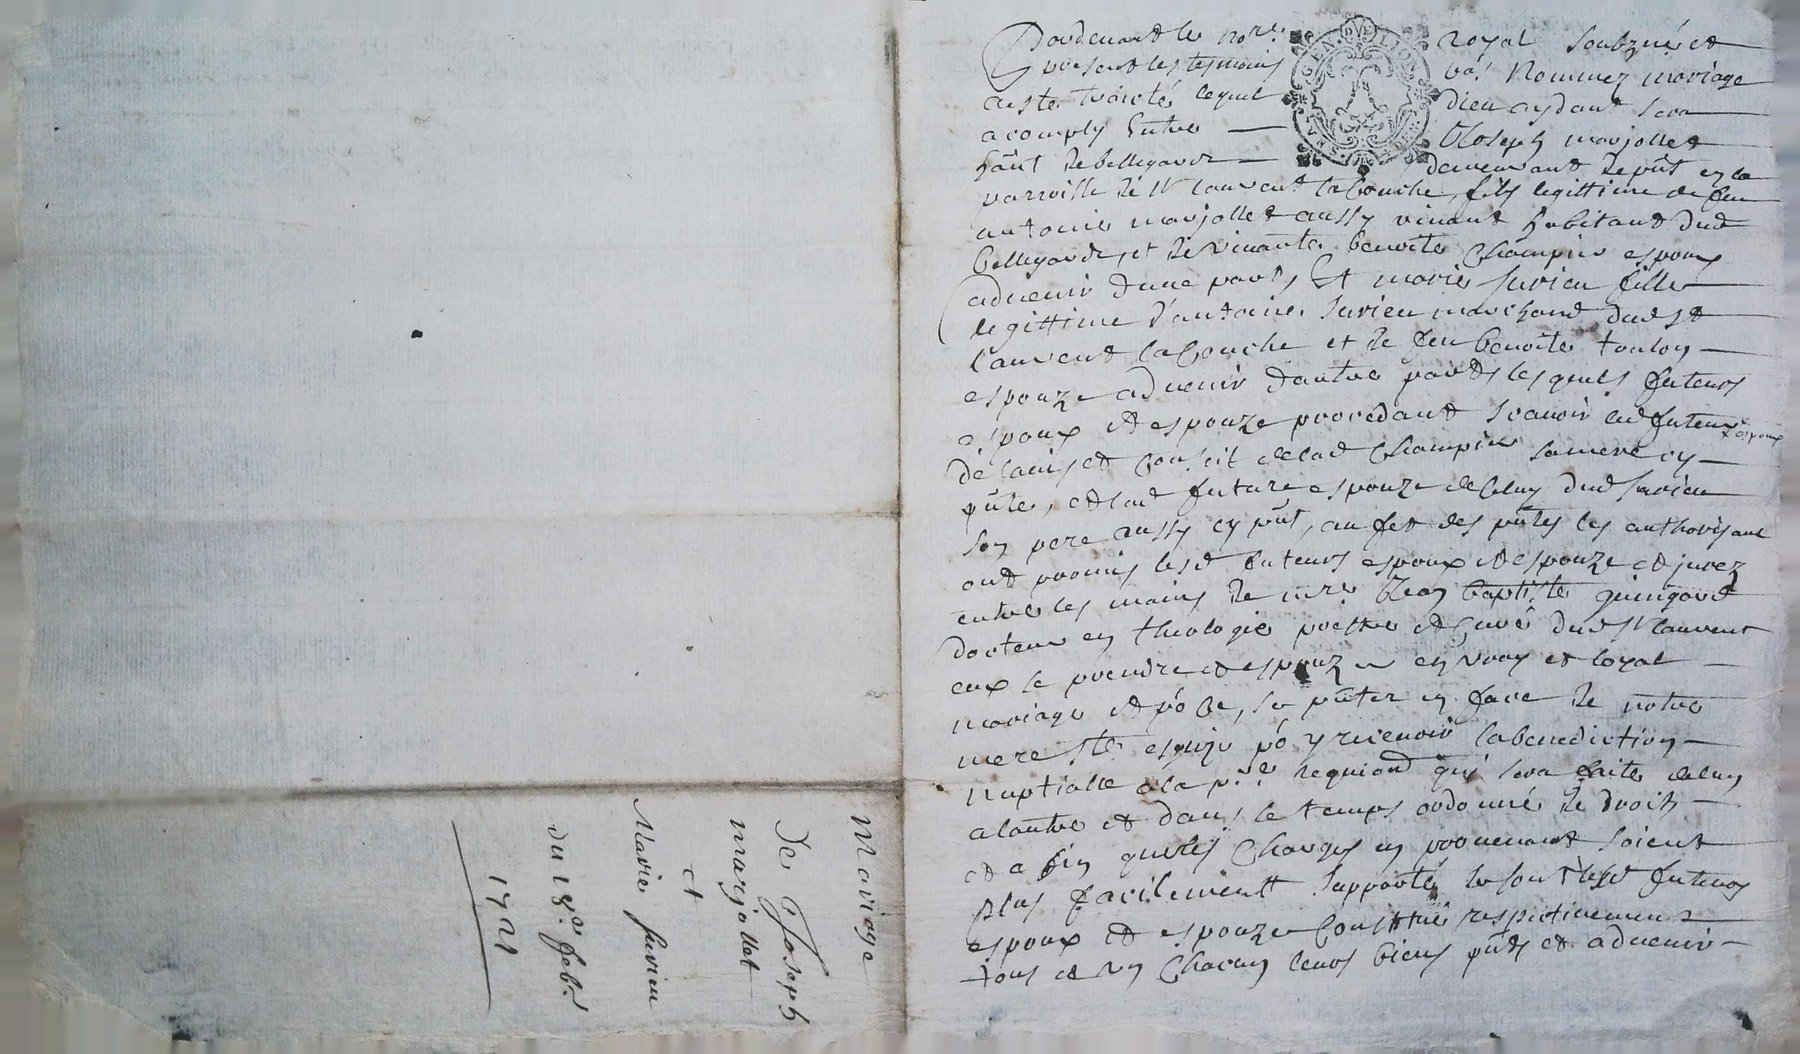 Pardevant le nore. royal soubzné et
présent les tesmoins bas nommez mariage
a esté traicté lequel dieu aydant sera
acomply Entre Joseph marjollet
hãnt de bellegarde demeurant de pñt en la
parroisse de St laurent la Conche, fils legittime de feu
antoine marjollet aussy vivant habitant dud
bellegarde, et de vivante benoite Champier espoux
advenir d'une part, Et marie Jurieu fille
legittime d'antoine Jurieu marchand dud St
laurent la Conche et de feu benoite toulon
espouze advenir d'autre part, lesquels futeurs
espoux et espouze procedant scavoir led futeur espoux
de l'avis et conseit de lad Champier sa mere cy
pñte, et lad future espouze de celuy dud Jurieu
son pere aussy cy pñt, au fet des pñtes les authorisant
ont promis lesd futeurs espoux et espouze et jurez
entre les mains de mre Jean baptiste guingard
docteur en theologie prestre et curé dud St laurent
eux se prendre et espouzer en vray et loyal
mariage et po ce, se pñter en face de notre
mere Ste esglize po y recevoir la benediction
nuptialle a la pre requiond qui sera faite de l'un
a l'autre et dans le temps ordonné de droit
et afin que les Charges en provenant soient
plus facilement supportés se sont lesd futeurs
espoux et espouze Constitué respectivement
tous et un Chacun leurs biens pñts et advenir
GEN. DE LION
Mariage
de Joseph
marjollet
et
Marie Jurieu
du 18e febr.
1721